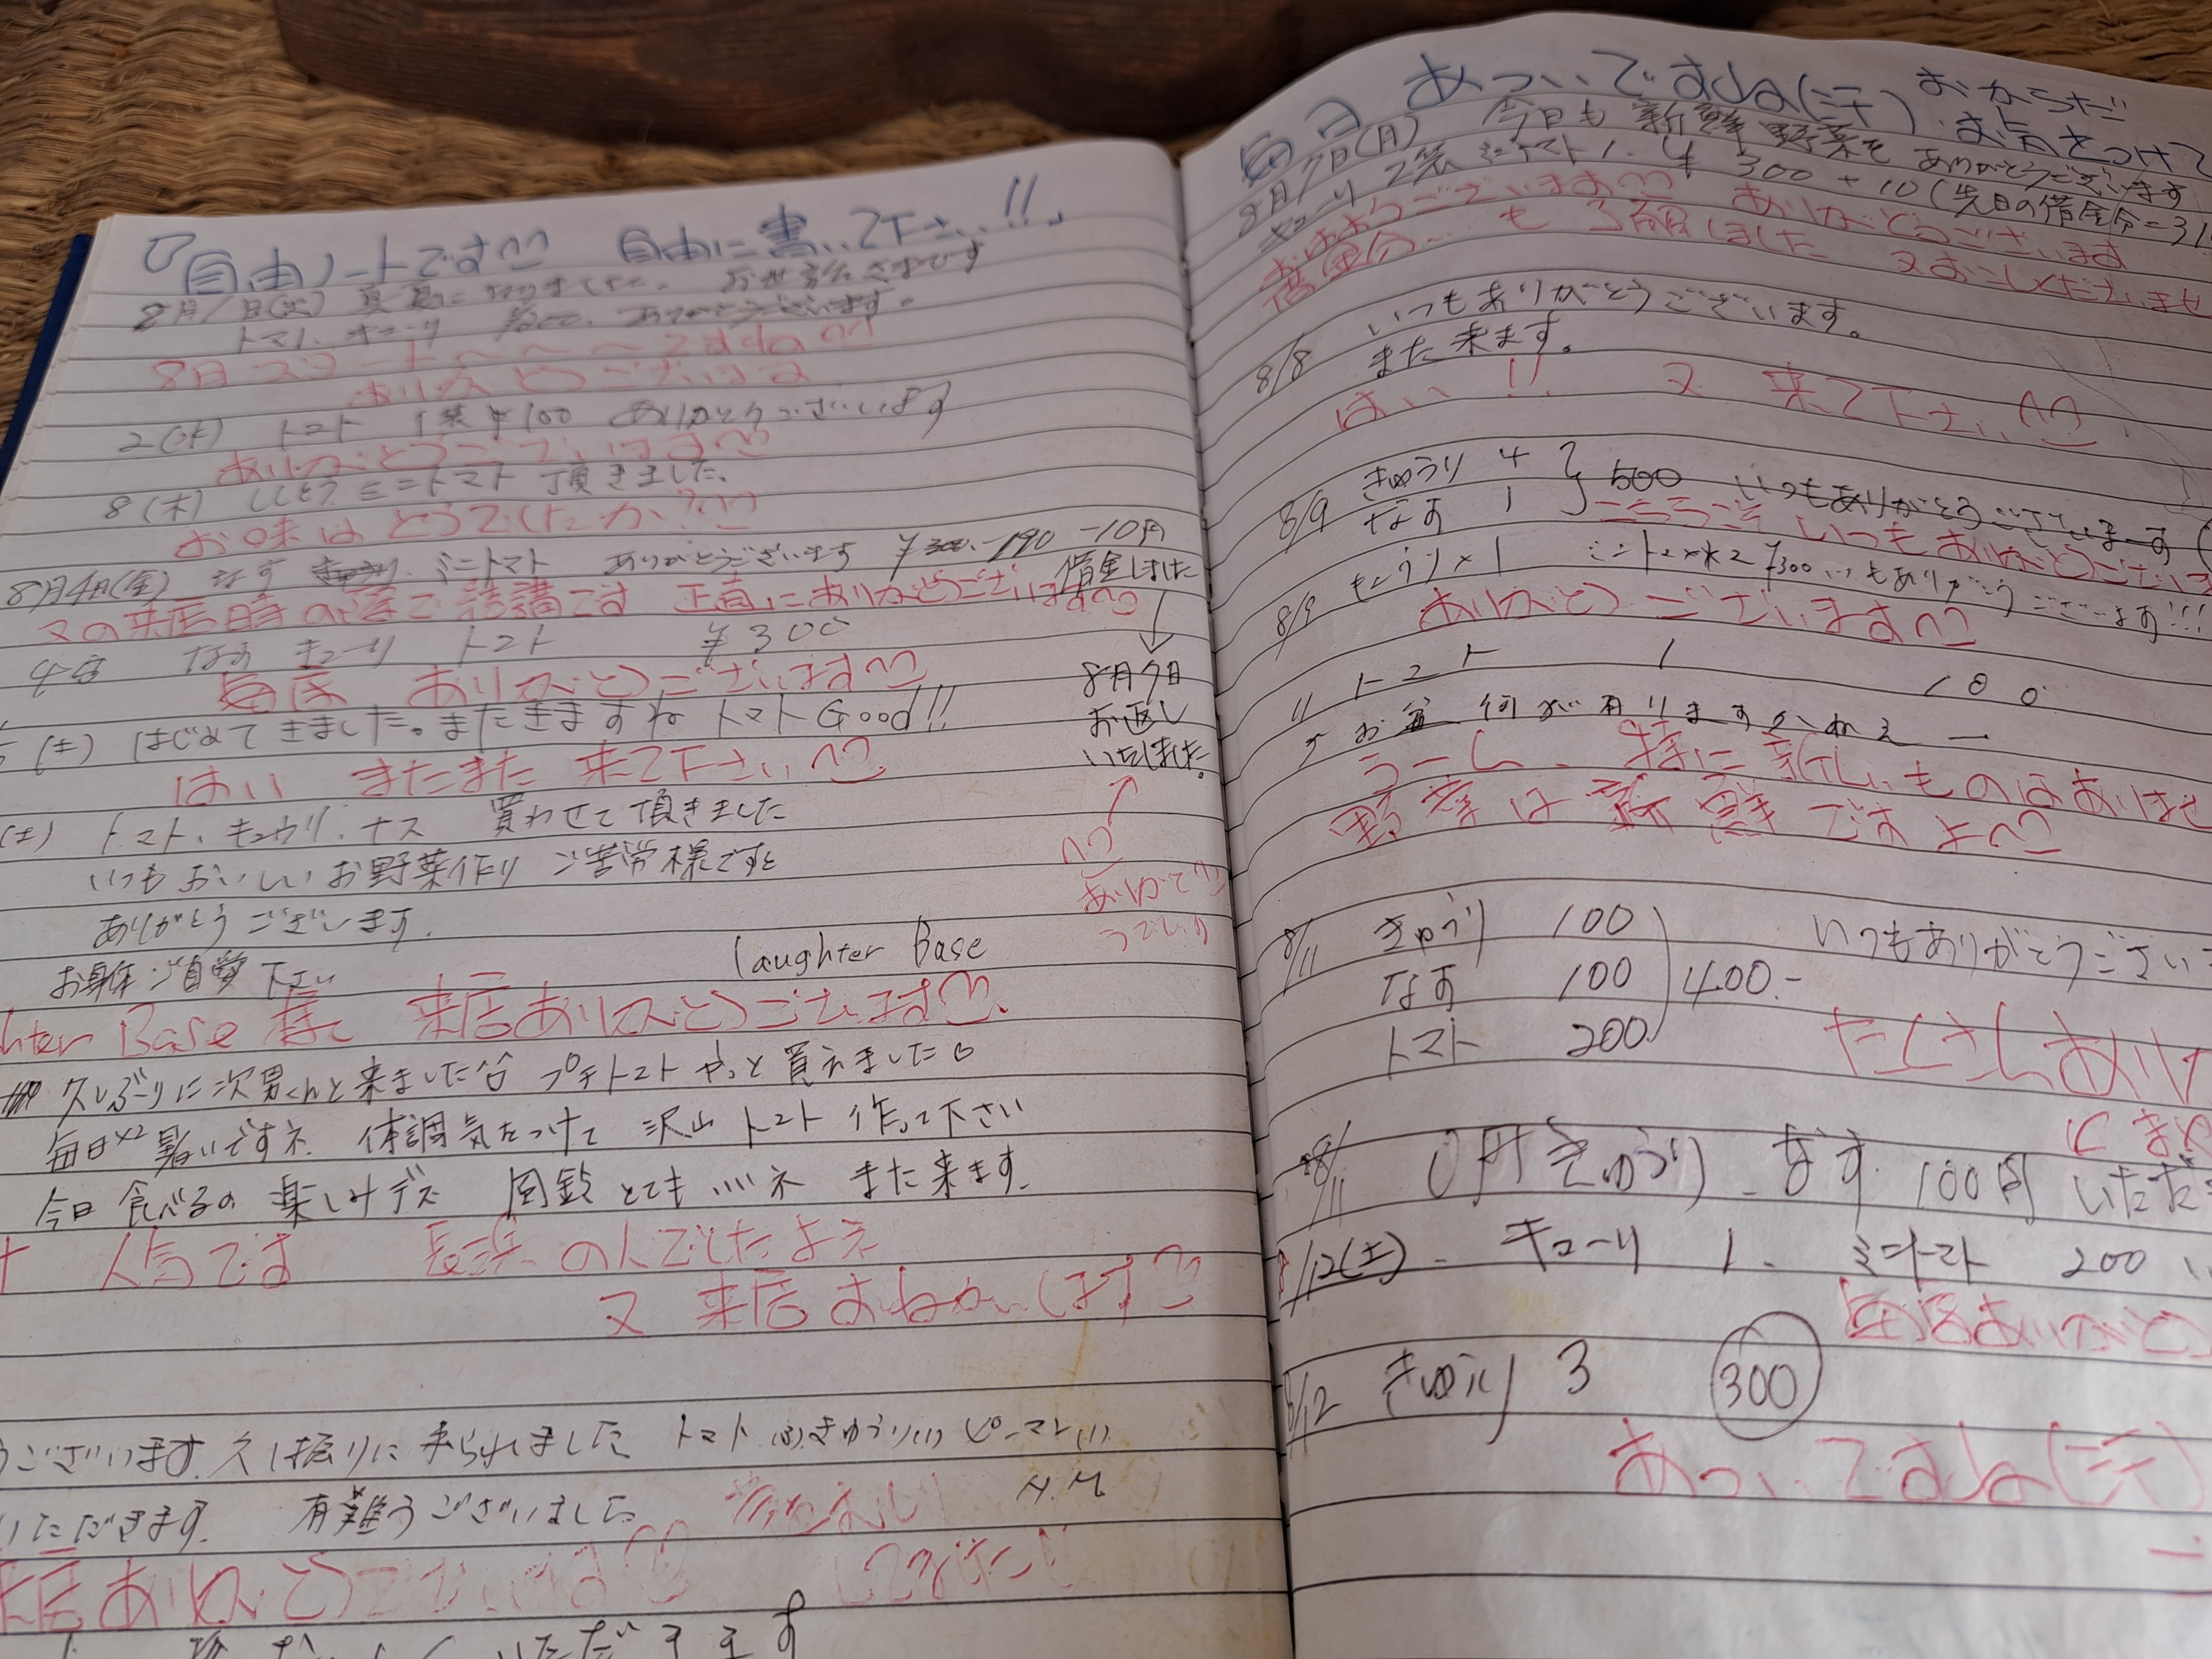 『自由ノートです 自由に書いて下さい!!』
8月1日(火) 真夏になりました。 お世話さまです
トマト、キューリ ¥200、ありがとうございます。
8月スタート〜〜〜ですね
ありがとうございます
2(水) トマト 1袋 ¥100 ありがとうございいます
ありがとうございます
8(木) ししとう ミニトマト 頂きました。
お味はどうでしたか?
8月4日(金) なす ミニトマト ありがとうございます ¥300.-190 -10円
借金しました
又の来店時の際で結構です 正直にありがとうございます
なす キューリ トマト ¥300
毎度 ありがとうございます
8月7日
お返し
いたしました。
(土) はじめてきました。またきますね トマトGood!!
はい またまた 来て下さい
(土) トマト、キュウリ、ナス 買わせて頂きました
いつもおいしいお野菜作り ご苦労様です
ありがとうございます。
お身体ご自愛下さい
laughter Base
hter Base 様 来店ありがとうございます
久しぶりに次男くんと来ました プチトマトやっと買えました
毎日×2 暑いですネ 体調気をつけて 沢山トマト作って下さい
今日食べるの楽しみデス 風鈴とてもいいネ また来ます。
人気です 長浜の人でしたよネ
又 来店おねがいします
うございます。久し振りに来られました トマト きゅうり(1) ピーマン(1)
いただきます。 有難うございました N.M
来店ありがとうございます
いただきます
毎日あついですね(汗) おからだ
お気をつけて
8月7日(月) 今日も新鮮野菜をありがとうございます
キューリ 2袋 ミニトマト1. ¥300+10(先日の借金分=31
おはようございます ありがとうございます
借金分… も了解しました 又おこしくださいませ
8/8 いつもありがとうございます。
また来ます。
はい!! 又 来て下さい
8/9 きゅうり 4
なす 1 } 500 いつもありがとうございます
こちらこそ いつもありがとうござい
8/9 きゅうり×1 ミニトマト×2 ¥300 いつもありがとうございます!!!
ありがとうございます
11 トマト 1 100
お盆 何が有りますかねえー
うーん、特に新しいものはありませ
野菜は新鮮ですよ
8/11 きゅうり 100
なす 100
トマト 200 ) 400.-
いつもありがとうござい
たくさんあり
8/11 きゅうり、なす 100円 いただ
8/12(土). キューリ 1. ミニトマト 200
毎度ありがとう
8/12 きゅうり 3 300
あついですね(汗)